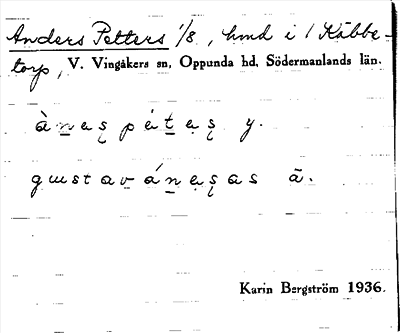 Anders Petters 1/8, hmd i 1 Käbbe-
torp, V. Vingåkers sn, Oppunda hd, Södermanlands län.
ànas̨ pét̲as̨ y.
gɯstav̲án̲as̨as ā.
Karin Bergström 1936.